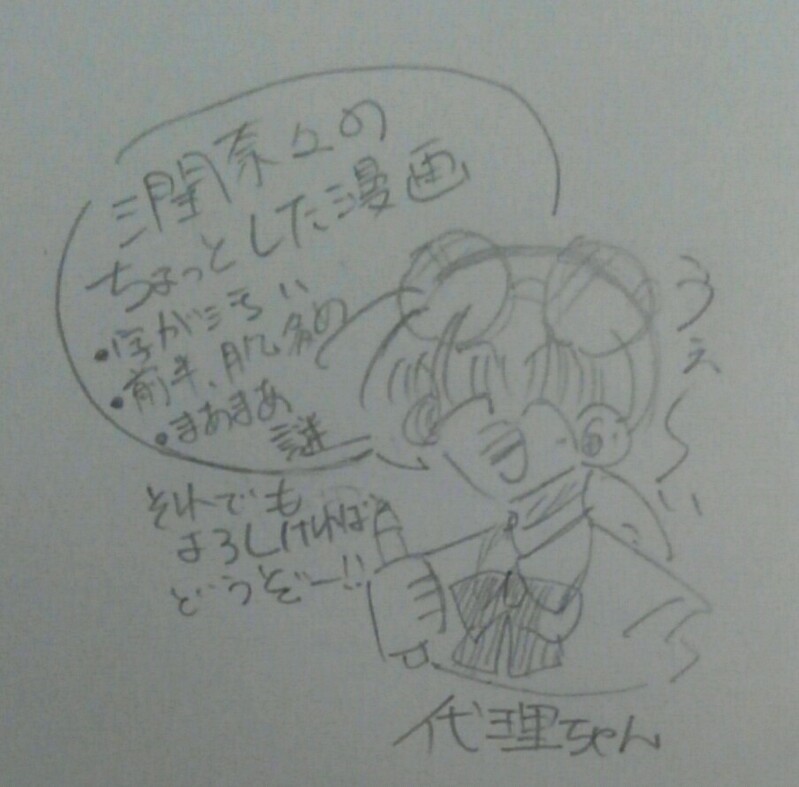 三閏奈々の
ちょっとした漫画
・字が汚い
・前半、肌多め
・まあまあ
謎
それでも
よろしければ
どうぞー!!
うぇ〜い
代理ちゃん